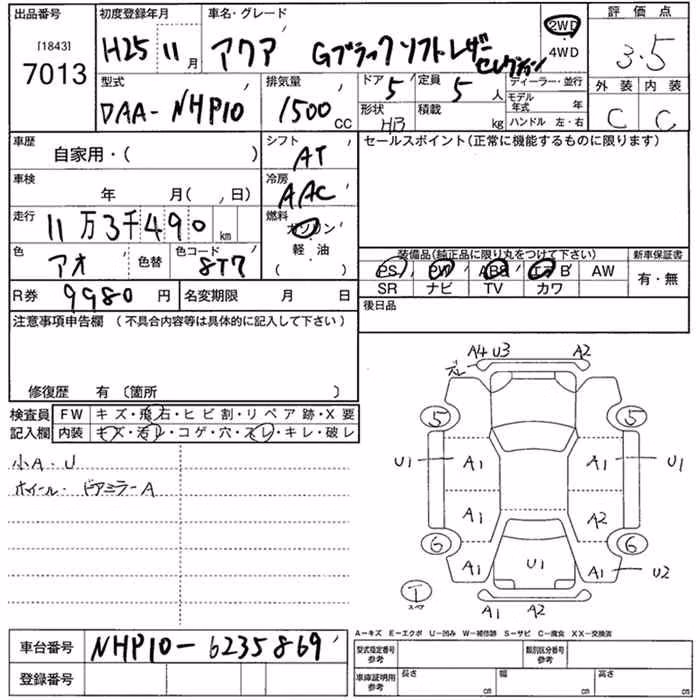 出品番号 初度登録年月 車名・グレード 評価点
[1843] 7013 H25 11月 アクア Gブラックソフトレザーセレクション 2WD・4WD 3.5
型式 排気量 ドア 定員 ディーラー・並行 外装 内装
DAA-NHP10 1500CC 5 5人 モデル年式 年 C C
形状 積載 ハンドル 左・右
HB kg
車歴 シフト セールスポイント(正常に機能するものに限ります)
自家用・( ) AT
車検 冷房
年 月( , 日) AAC
走行 燃料
11万3千490km ガソリン・軽・油( )
色 色替 色コード 装備品(純正品に限り丸をつけて下さい) 新車保証書
アオ 8T7 PS PW ABS エアB AW 有・無
R券 9980円 名変期限 月 日 SR ナビ TV カワ
注意事項申告欄(不具合内容等は具体的に記入して下さい) 後日品
修復歴 有〔箇所 〕
検査員 FW キズ・飛石・ヒビ割・リペア跡・X要
記入欄 内装 キズ・汚レ・コゲ・穴・スレ・キレ・破レ
小A・U
ホイール・ドアミラーA
ズレ A4 U3 A2
5 5
U1 A1 A1 U1
A1 A2
6 6
A1 U1 A1 U2
T スペア
A1 A2
A-キズ E-エクボ U-凹み W-補修跡 S-サビ C-腐食 XX-交換済
車台番号 NHP10-6235869
型式指定番号 参考 類別区分番号 参考
登録番号 車庫証明用 参考 長さ cm 幅 cm 高さ cm